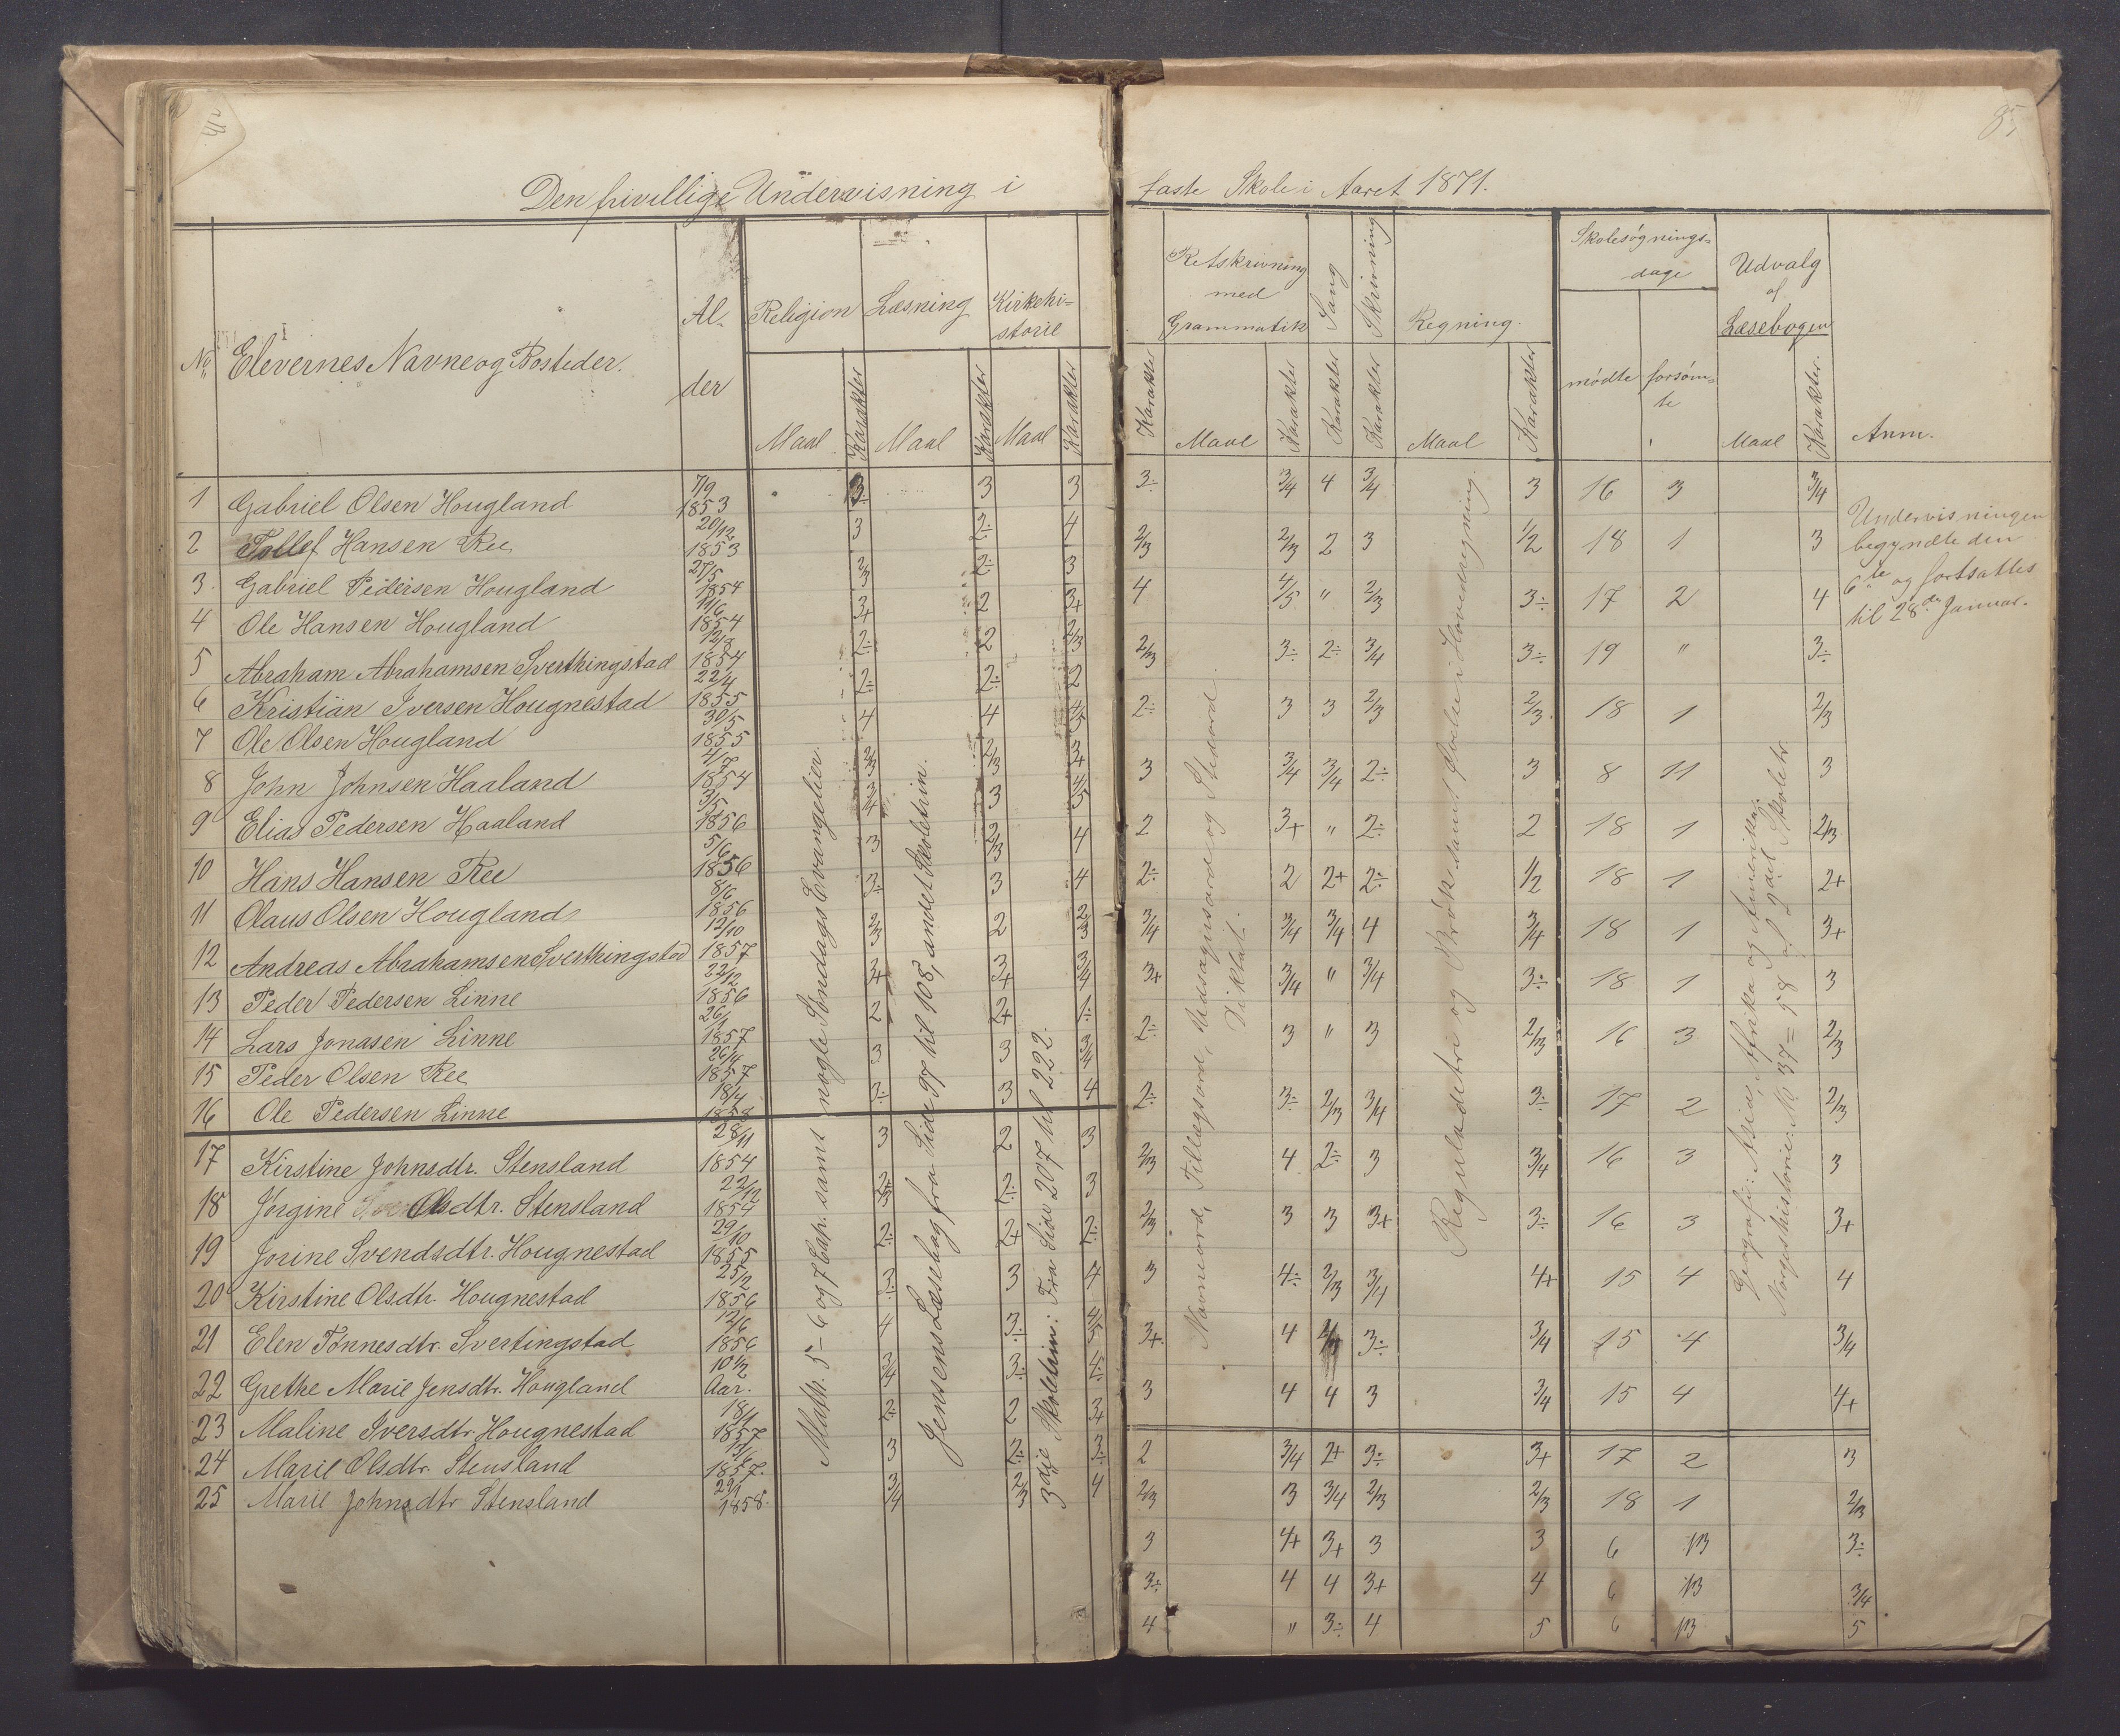 85
Den frivillige Undervisning i faste Skole i Aaret 1871.
No Elevernes Navne og Bosteder. Alder Religion Læsning Kirkehistorie
Maal Karakter Maal Karakter Maal Karakter
Karakter Retskrivning med Grammatik Sang Skrivning Regning. Skolesøgningsdage Udvalg af Læsebogen
Maal Karakter Karakter Karakter Maal Karakter mødte forsømte Maal Karakter. Anm.
1 Gabriel Olsen Hougland 7/9 1853 3 3 3
2 Tollef Hansen Ree 20/12 1853 3 2÷ 4
3. Gabriel Pedersen Hougland 27/5 1854 2/3 2÷ 3
4 Ole Hansen Hougland 11/6 1854 3+ 2 3+
5 Abraham Abrahamsen Sverthingstad 12/8 1854 2÷ 2 2/3
6 Kristian Iversen Hougnestad 22/4 1855 2÷ 2÷ 2
7 Ole Olsen Hougland 30/5 1855 4 4 4/5
8 John Johnsen Haaland 4/7 1854 2/3 2/3
9 Elias Pedersen Haaland 3/5 1856 3/4 3 4/5
10 Hans Hansen Ree 5/6 1856 3 2/3 4
11 Olaus Olsen Hougland 8/6 1856 3÷ 3 4
12 Andreas Abrahamsen Sverthingstad 12/10 1857 2/3 2 2/3
13 Peder Pedersen Linne 22/12 1856 3+ 3+ 3/4
14 Lars Jonasen Linne 26/1 1857 2 2+ 1÷
15 Peder Olsen Ree 26/4 1857 3 3 3/4
16 Ole Pedersen Linne 18/4 1858 3÷ 3 4
17 Kirstine Johnsdtr. Stensland 28/11 1854 3 2 3
18 Jørgine Olsdtr. Stensland 22/12 1854 2/3 2÷ 3
19 Jorine Svendsdtr. Hougnestad 29/10 1855 2÷ 2+ 2÷
20 Kirstine Olsdtr. Hougnestad 25/2 1856 3÷ 3 4
21 Elen Tønnesdtr. Svertingstad 12/6 1856 4 3÷ 4/5
22 Grethe Marie Jensdtr. Hougland 10 1/2 Aar. 3/4 3÷ 4÷
23 Maline Iversdtr. Hougnestad 18/1 1857 2÷ 2 3+
24 Marie Olsdtr. Stensland 1857. 3 2÷ 3÷
25 Marie Johnsdtr Stensland 29/1 1858. 3/4 2/3 4
Matth. 5 – 6 og 7 Cap. samt nogle Søndags Evangelier.
Jensens Læsebog fra Side 97 til 108, andet Skoletrin.
3die Skoletrin: Fra Side 207 til 222.
3÷ 3/4 4 3/4 3 16 3 3/4
2/3 2/3 2 3 1/2 18 1 3
4 4/5 " 2/3 3÷ 17 2 4
2/3 3÷ 2÷ 3/4 3÷ 19 " 3÷
2÷ 3 3 2/3 2/3 18 1 2/3
3 3/4 3/4 2÷ 3 8 11 3
2 3+ " 2÷ 2 18 1 2/3
2÷ 2 2+ 2÷ 1/2 18 1 2+
3/4 3/4 3/4 4 3/4 18 1 3+
3+ 3/4 " 3/4 3÷ 18 1 3
2÷ 3 " 3 2/3 16 3 2/3
2÷ 3÷ 2/3 3/4 3÷ 17 2 2/3
2/3 4 2÷ 3 3/4 16 3 3
2/3 3 3 3+ 3÷ 16 3 3+
3 4÷ 2/3 3/4 4+ 15 4 4
3+ 4 3÷ 3/4 15 4 3/4
3 4 4 3 3/4 15 4 4+
2 3/4 2+ 3÷ 3+ 17 2 3
2/3 3 3/4 2/3 2/3 18 1 2/3
3 4+ 3+ 3 3 6 13 3÷
3÷ 4 4 3+ 4 6 13 3/4
4 " 3÷ 4 5 6 13 5
Navneord, Tillægsord, Udsagnsord og Stedord.
Diktat.
Reguladetri og Brøk samt Øvelse i Hovedregning
Geografi: Asia, Afrika og Amerika;
Norgeshistorie: No 37 = 58 af 2det Skoletr.
Undervisningen
begyndte den
6te og fortsattes
til 28de Januar.